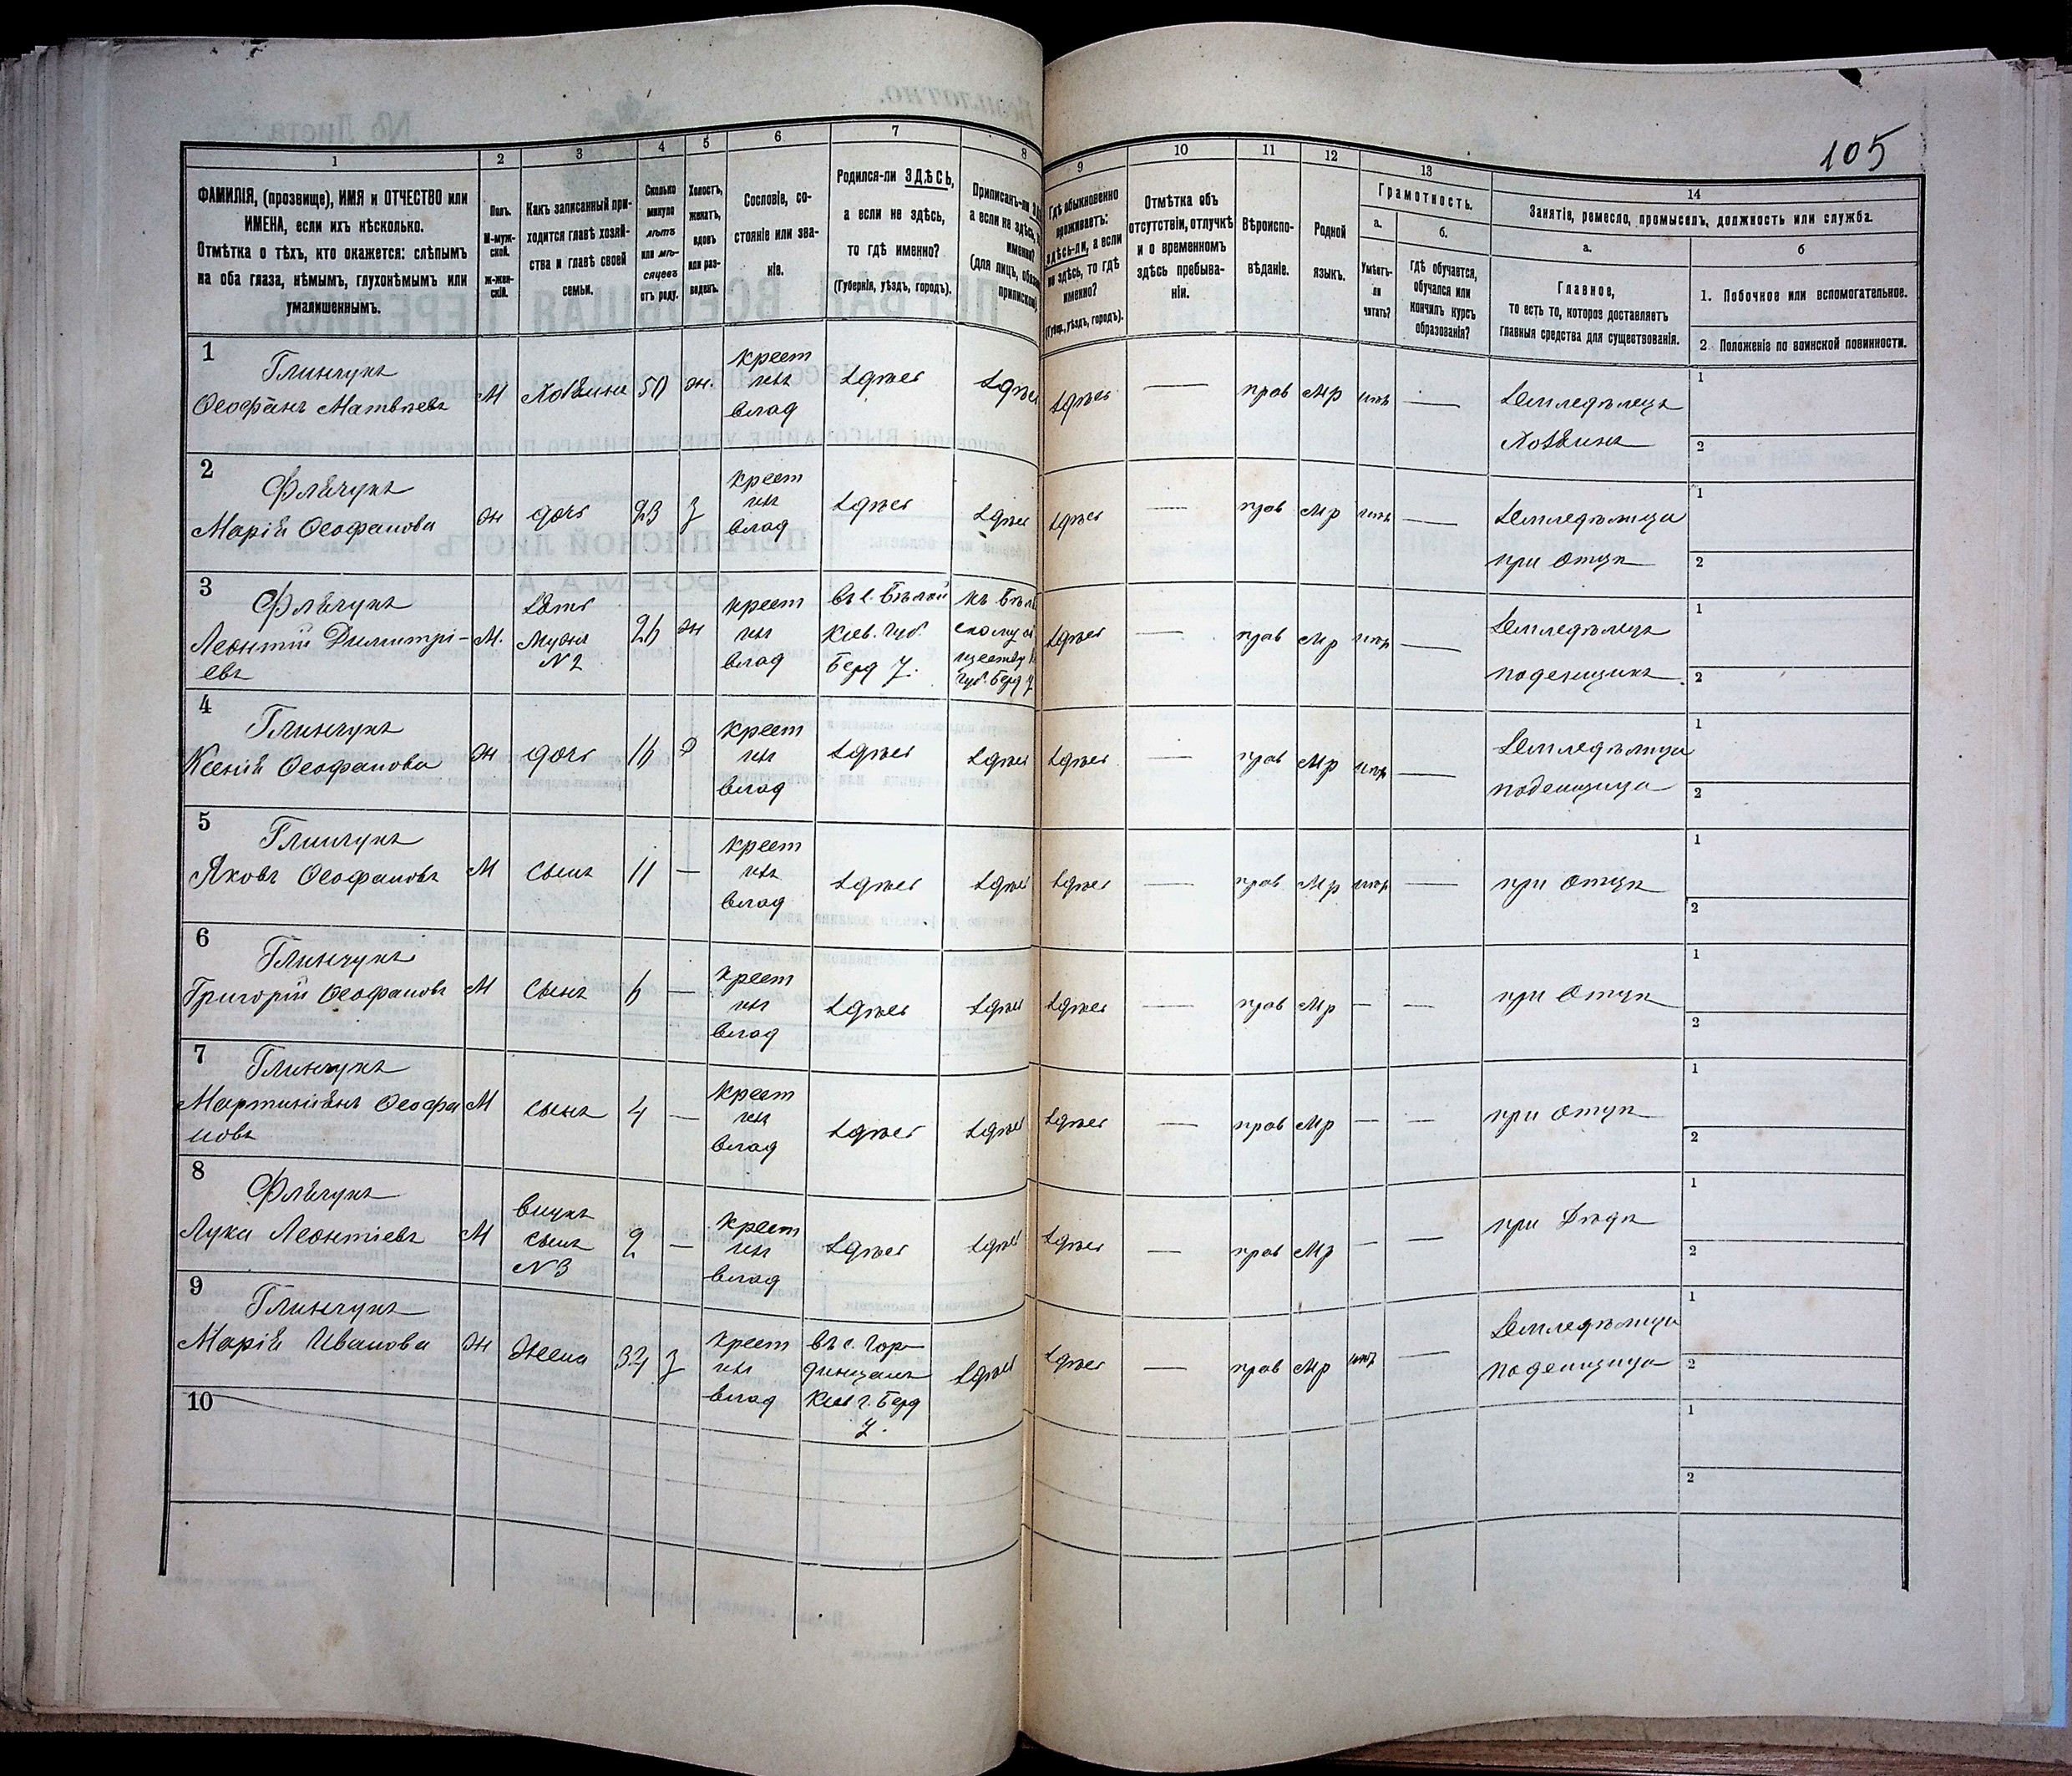 105
1
2
3
4
5
6
7
8
9
10
11
12
13
14
ФАМИЛІЯ, (прозвище), ИМЯ и ОТЧЕСТВО или
ИМЕНА, если ихъ нѣсколько.
Отмѣтка о тѣхъ, кто окажется: слѣпымъ
на оба глаза, нѣмымъ, глухонѣмымъ или
умалишеннымъ.
Полъ.
М-муж-
ской.
Ж-жен-
скій.
Какъ записанный при-
ходится главѣ хозяй-
ства и главѣ своей
семьи.
Сколько
минуло
лѣтъ
или мѣ-
сяцевъ
отъ роду.
Холостъ,
женатъ,
вдовъ
или раз-
веденъ.
Сословіе, со-
стояніе или зва-
ніе.
Родился-ли ЗДѢСЬ,
а если не здѣсь,
то гдѣ именно?
(Губернія, уѣздъ, городъ).
Приписанъ-ли
а если не здѣсь,
именно?
(для лицъ,
Гдѣ обыкновенно
проживаетъ:
здѣсь-ли, а если
не здѣсь, то гдѣ
именно?
(Губер., уѣздъ, городъ).
Отмѣтка объ
отсутствіи, отлучкѣ
и о временномъ
здѣсь пребыва-
ніи.
Вѣроиспо-
вѣданіе.
Родной
языкъ.
Грамотность.
а.
б.
Умѣетъ-
ли
читать?
Гдѣ обучается,
обучался или
кончилъ курсъ
образованія?
Занятіе, ремесло, промыселъ, должность или служба.
а.
б
Главное,
то есть то, которое доставляетъ
главныя средства для существованія.
1. Побочное или вспомогательное.
2 Положеніе по воинской повинности.
1
Глинчукъ
Ѳеофанъ Матвѣевъ
М Хозяинъ 50 ж.
крест
изъ
влад
здѣсь здѣсь здѣсь — прав Мр нѣтъ —
Земледѣлецъ
Хозяинъ
1
2
2
Флячукъ
Марія Ѳеофанова
Ж дочь 23 З
крест
изъ
влад
здѣсь здѣсь здѣсь — прав Мр нѣтъ —
Земледѣлица
при Отцѣ
1
2
3
Флячукъ
Леонтій Димитрі-
евъ
М.
Зять
Мужъ
N 2
26 ж
крест
изъ
влад
въ с. Бѣлой
Кіев. Губ.
Берд У.
Губ. Берд У
здѣсь — прав Мр нѣтъ —
Земледѣлецъ
поденщикъ
1
2
4
Глинчукъ
Ксенія Ѳеофанова
Ж дочь 16
крест
изъ
влад
здѣсь здѣсь здѣсь — прав Мр нѣтъ —
Земледѣлица
поденщица
1
2
5
Глинчукъ
Яковъ Ѳеофановъ
М Сынъ 11 —
крест
изъ
влад
здѣсь здѣсь здѣсь — прав Мр нѣтъ —
при Отцѣ
1
2
6
Глинчукъ
Григорій Ѳеофановъ
М Сынъ 6 —
крест
изъ
влад
здѣсь здѣсь здѣсь — прав Мр — —
при Отцѣ
1
2
7
Глинчукъ
Мартиніянъ Ѳеофа
новъ
М сынъ 4 —
крест
изъ
влад
здѣсь здѣсь здѣсь — прав Мр — —
при Отцѣ
1
2
8
Флячукъ
Лука Леонтіевъ
М
внукъ
сынъ
N 3
2 —
крест
изъ
влад
здѣсь здѣсь здѣсь — прав Мр — —
при Дѣдѣ
1
2
9
Глинчукъ
Марія Иванова
Ж Жена З
крест
изъ
влад
Кіев г. Берд
У.
здѣсь здѣсь — прав Мр нѣтъ —
Земледѣлица
поденщица
1
2
10
1
2